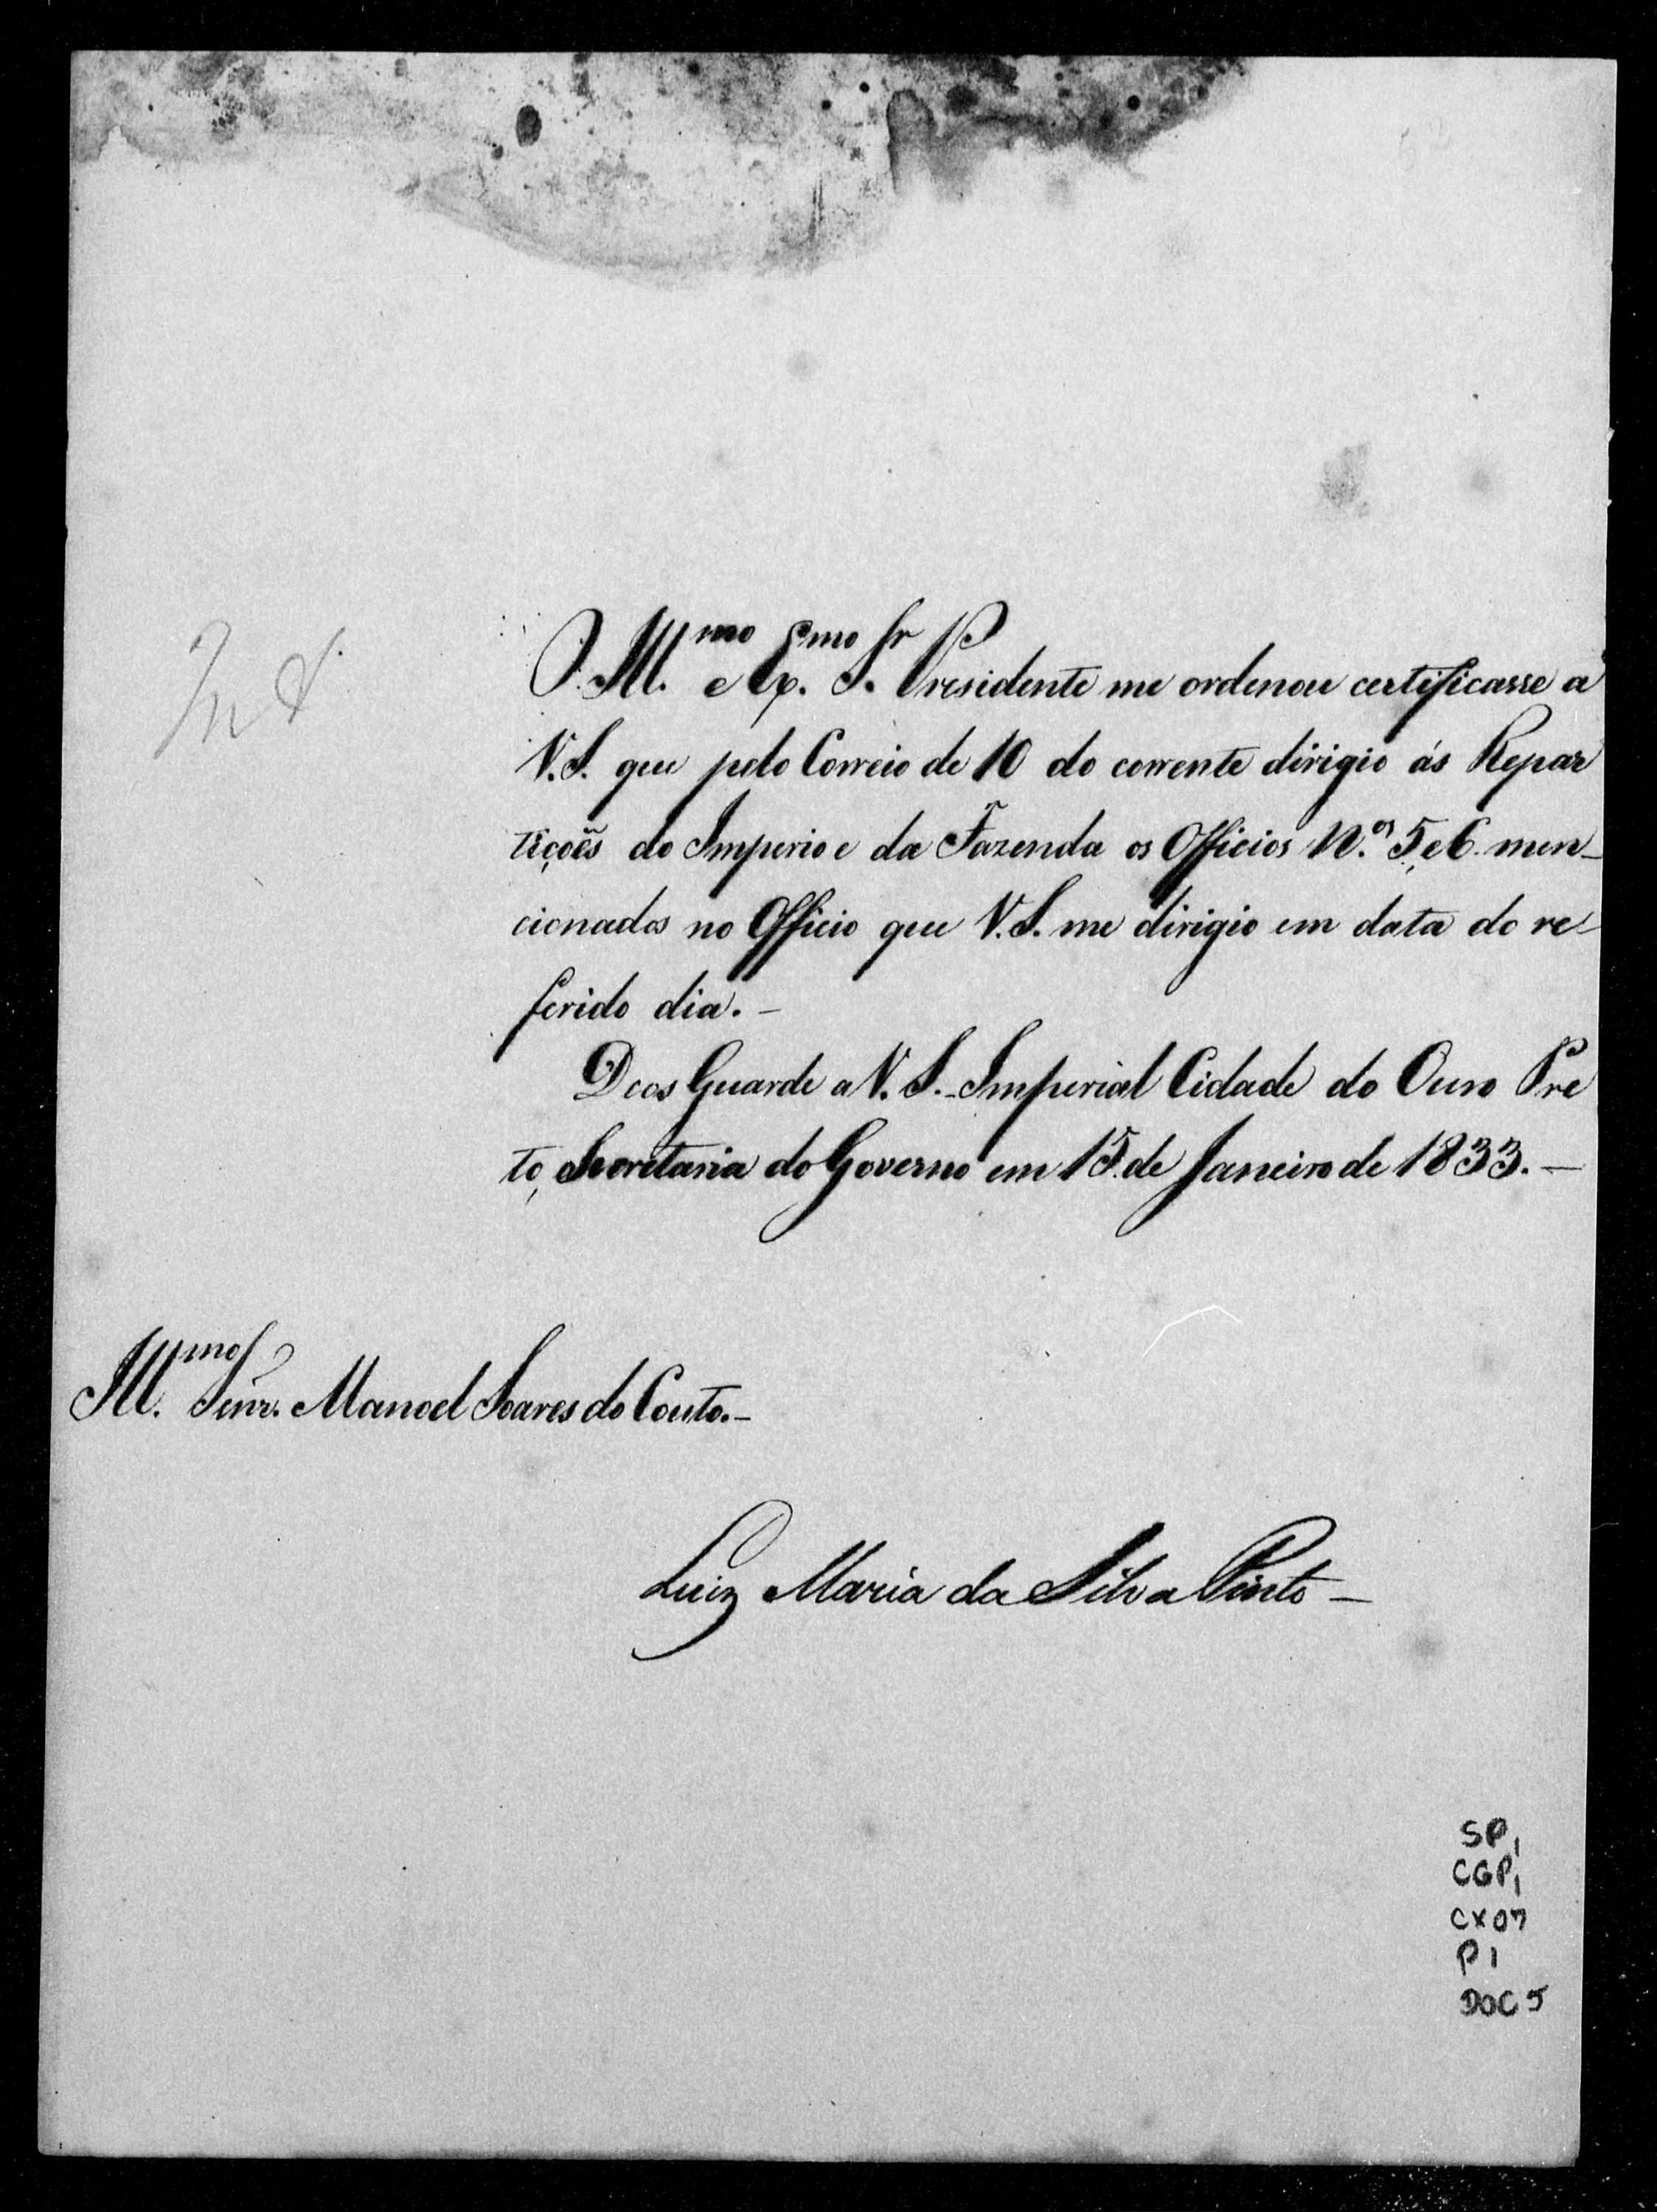 O Ill.mo e Ex.mo Sr. Presidente me ordenou certificasse a
V.S. que pelo Correio de 10 do corrente dirigio ás Repar
tiçoẽs do Imperio e da Fazenda os Officios N.os 5, e 6 men-
cionados no Officio que V.S. me dirigio em data do re-
ferido dia.-
Deos Guarde a V.S.- Imperial Cidade do Ouro Pre
to, Secretaria do Governo em 15 de Janeiro de 1833.-
Ill.mo Senr. Manoel Soares do Couto.-
Luiz Maria da Silva Pinto-
SP1
CGP1
CX07
P1
DOC5